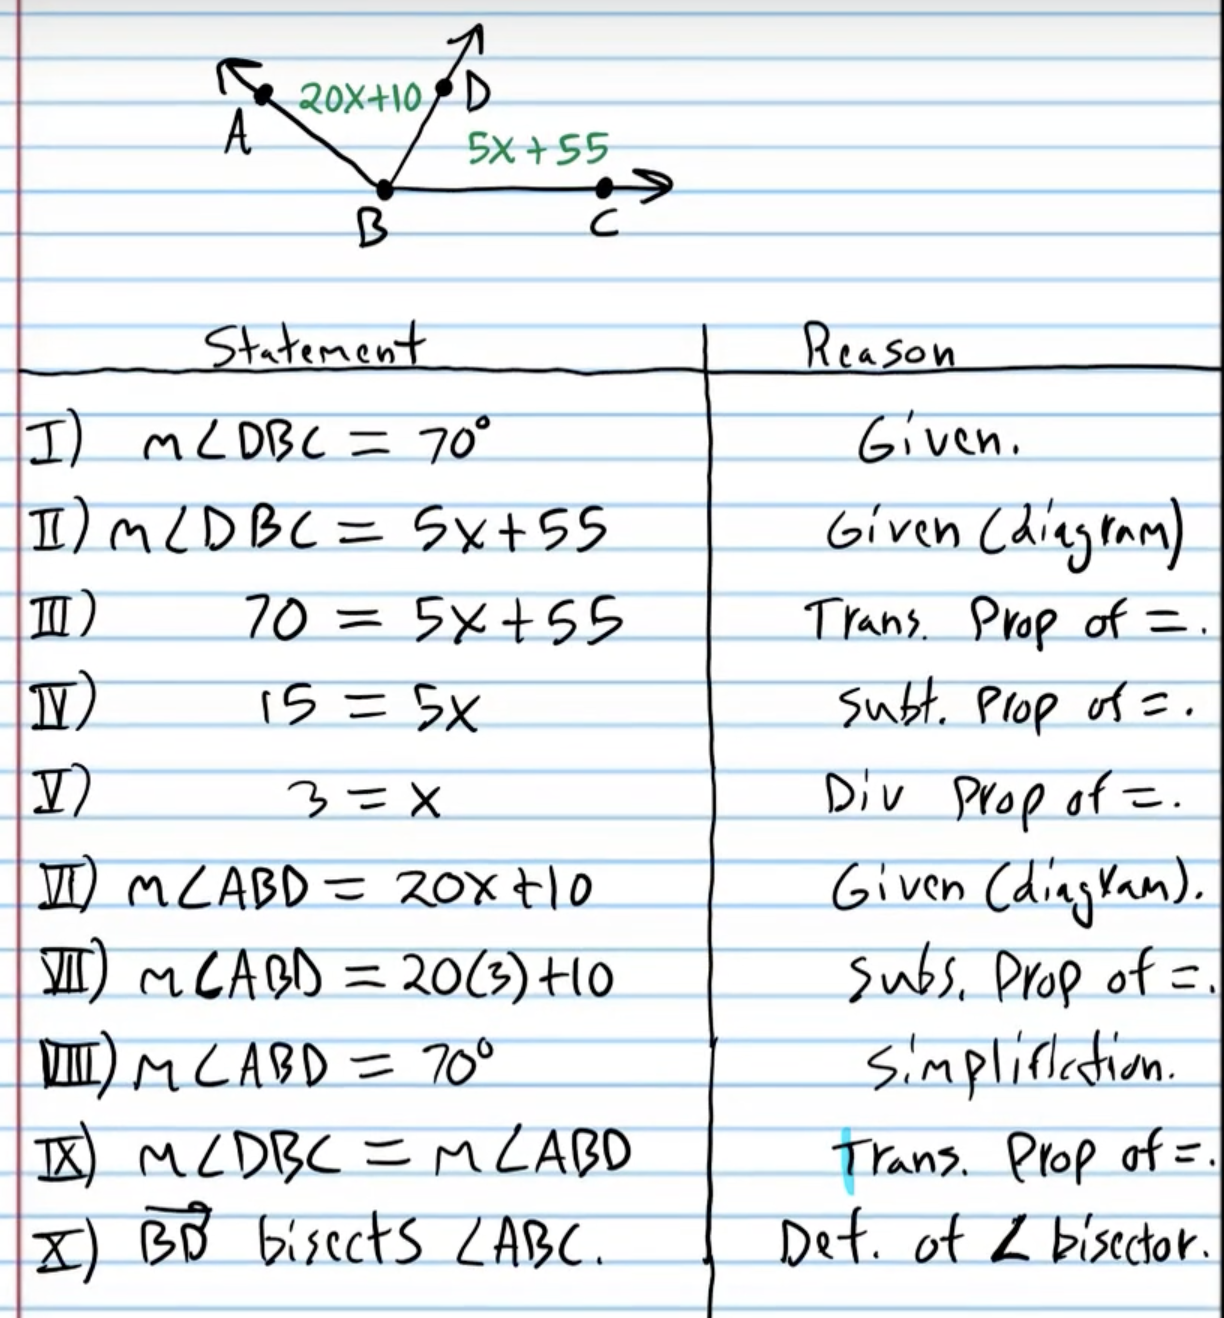 20x+10
D
A
5x+55
B
C
Statement Reason
I) m∠DBC = 70° Given.
II) m∠DBC = 5x+55 Given (diagram)
III) 70 = 5x+55 Trans. Prop of =.
IV) 15 = 5x Subt. Prop of =.
V) 3 = x Div Prop of =.
VI) m∠ABD = 20x+10 Given (diagram).
VII) m∠ABD = 20(3)+10 Subs. Prop of =.
VIII) m∠ABD = 70° Simplifiction.
IX) m∠DBC = m∠ABD Trans. Prop of =.
X) B͞D⃗ bisects ∠ABC. Def. of ∠ bisector.